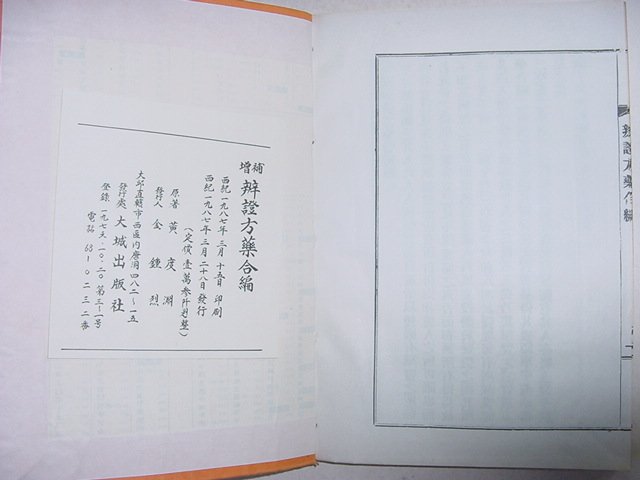 補增 辨證方藥合編
西紀 一九八七年 三月 十五日 印刷
西紀 一九八七年 三月 二十八日 發行
(定價 壹萬參阡원整)
原著 黃度淵
發行人 金鍾烈
大邱直轄市西區內唐洞四八二~一五
發行處 大城出版社
登錄 一九七六·一〇·二〇 第三~一號
電話 68-0232番
辨證方藥合編